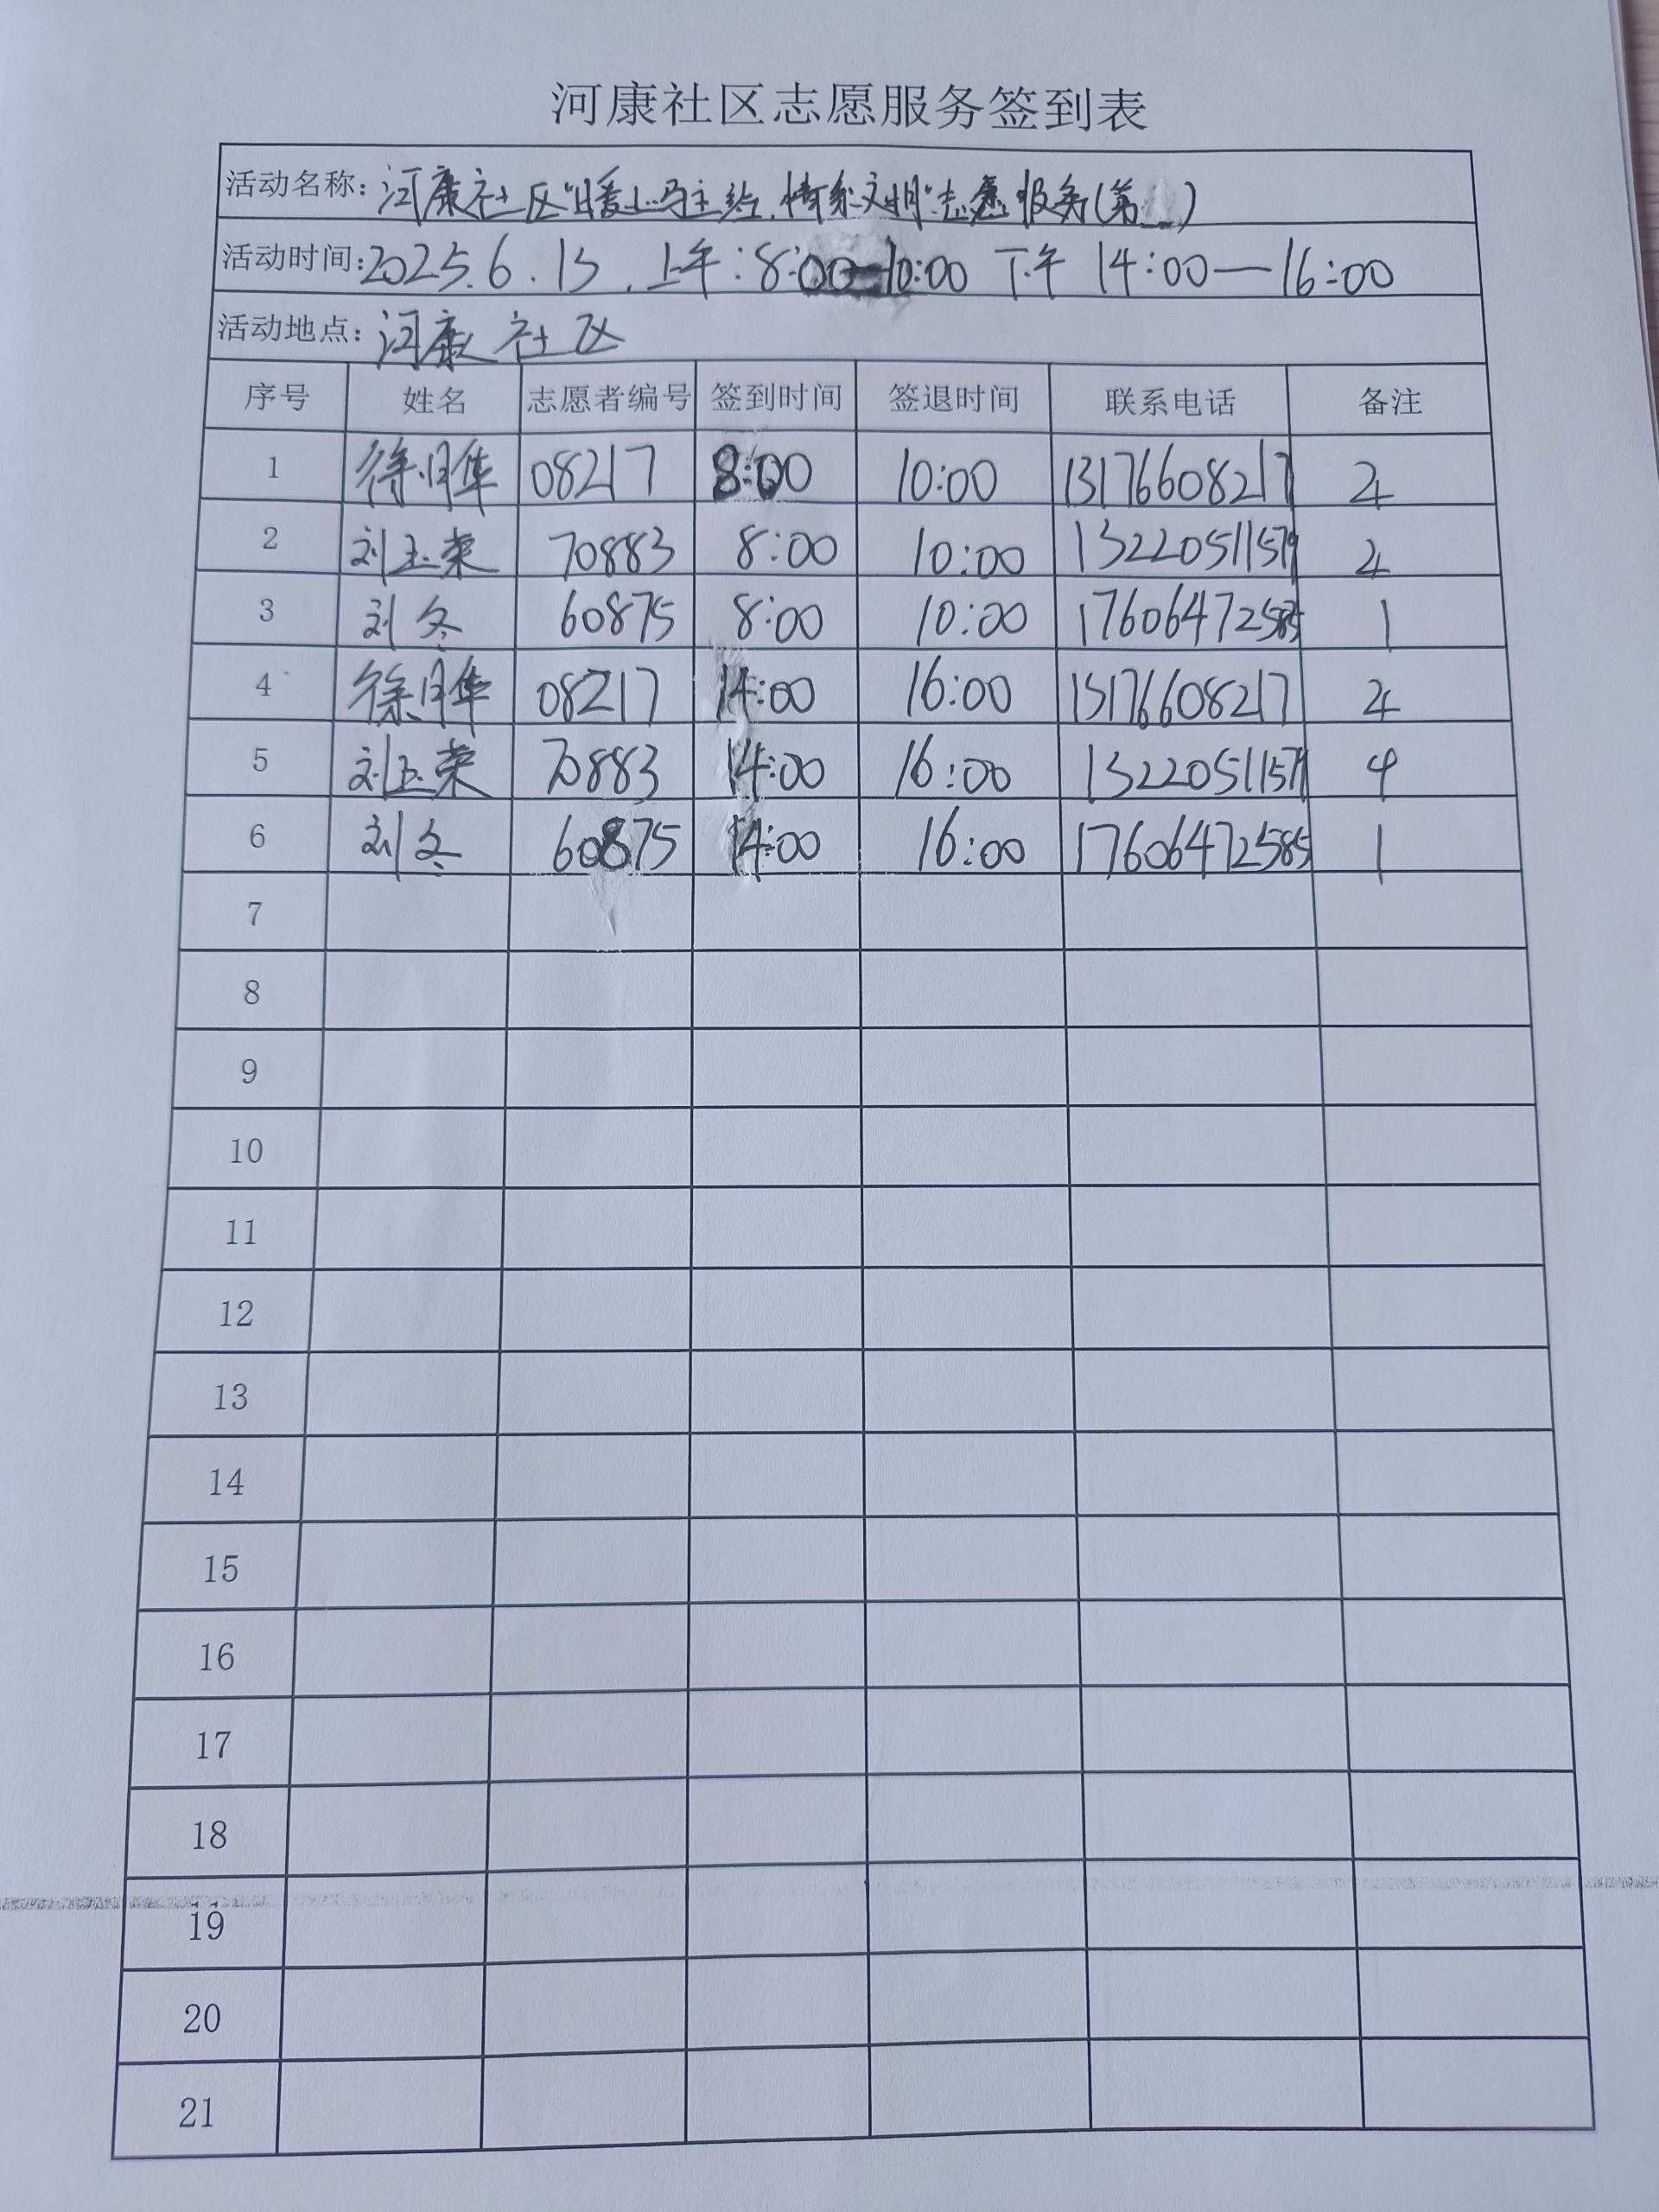 河康社区志愿服务签到表
活动名称：河康社区"暖心驿站，情系文明"志愿服务(第)
活动时间：2025.6.13. 上午：8:00—10:00 下午 14:00—16:00
活动地点：河康社区
序号 姓名 志愿者编号 签到时间 签退时间 联系电话 备注
1 徐月华 08217 8:00 10:00 13176608217 2
2 刘玉荣 70883 8:00 10:00 13220511579 2
3 刘冬 60875 8:00 10:00 17606472585 1
4 徐月华 08217 14:00 16:00 13176608217 2
5 刘玉荣 70883 14:00 16:00 13220511579 4
6 刘冬 60875 14:00 16:00 17606472585 1
7
8
9
10
11
12
13
14
15
16
17
18
19
20
21